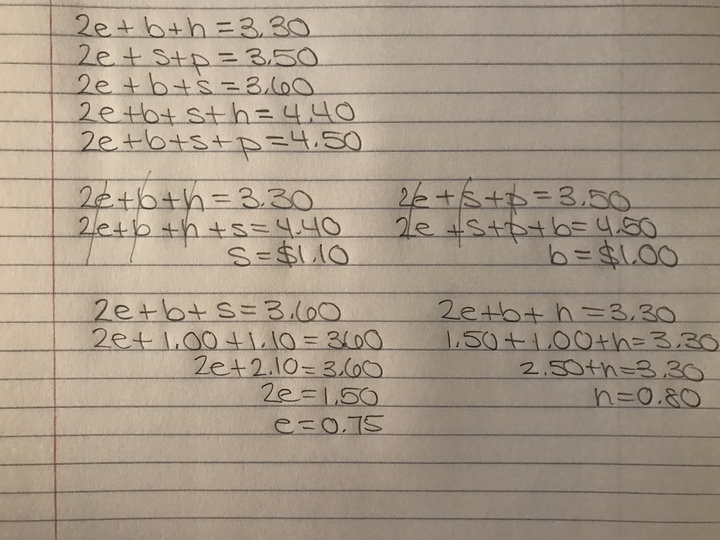 2e + b + h = 3.30
2e + s + p = 3.50
2e + b + s = 3.60
2e + b + s + h = 4.40
2e + b + s + p = 4.50
2e + b + h = 3.30
2e + b + h + s = 4.40
s = $1.10
2e + s + p = 3.50
2e + s + p + b = 4.50
b = $1.00
2e + b + s = 3.60
2e + 1.00 + 1.10 = 3.60
2e + 2.10 = 3.60
2e = 1.50
e = 0.75
2e + b + h = 3.30
1.50 + 1.00 + h = 3.30
2.50 + h = 3.30
h = 0.80